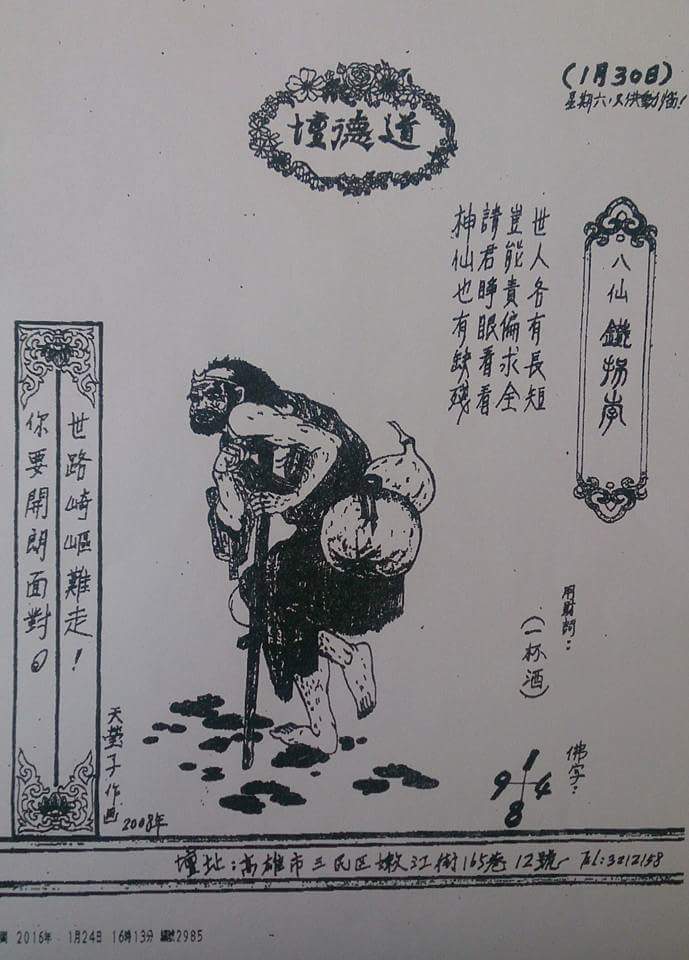 (1月30日)
星期六.只供動腦!
道德壇
八仙鐵拐李
世人各有長短
豈能責偏求全
請君睜眼看看
神仙也有缺殘
世路崎嶇難走!
你要開朗面對。
天瑩子作画
2008年
(一杯酒)
佛字:
1
9 4
8
壇址:高雄市三民区嫩江街165巷12號 Tel:3212158
2016年 1月24日 16時13分 編號2985